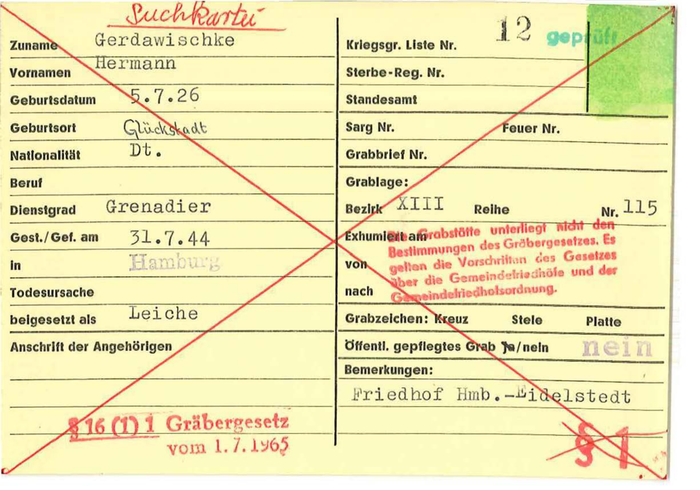 Suchkartei
Zuname Gerdawischke
Vornamen Hermann
Geburtsdatum 5.7.26
Geburtsort Glückstadt
Nationalität Dt.
Beruf
Dienstgrad Grenadier
Gest./Gef. am 31.7.44
in Hamburg
Todesursache
beigesetzt als Leiche
Anschrift der Angehörigen
§ 16 (1) 1 Gräbergesetz
vom 1.7.1965
12 geprüft
Kriegsgr. Liste Nr.
Sterbe-Reg. Nr.
Standesamt
Sarg Nr. Feuer Nr.
Grabbrief Nr.
Grablage:
Bezirk XIII Reihe Nr. 115
Exhumiert am
von
nach
Die Grabstätte unterliegt nicht den
Bestimmungen des Gräbergesetzes. Es
gelten die Vorschriften des Gesetzes
über die Gemeindefriedhöfe und der
Gemeindefriedhofsordnung.
Grabzeichen: Kreuz Stele Platte
Öffentl. gepflegtes Grab ja/nein nein
Bemerkungen:
Friedhof Hmb.-Eidelstedt
§ 1